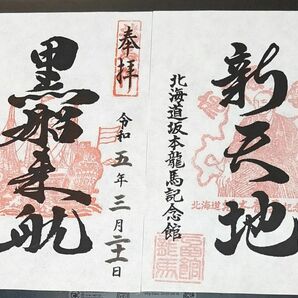 新天地
北海道坂本龍馬記念館
奉拝
令和五年三月二十一日
黒船来航